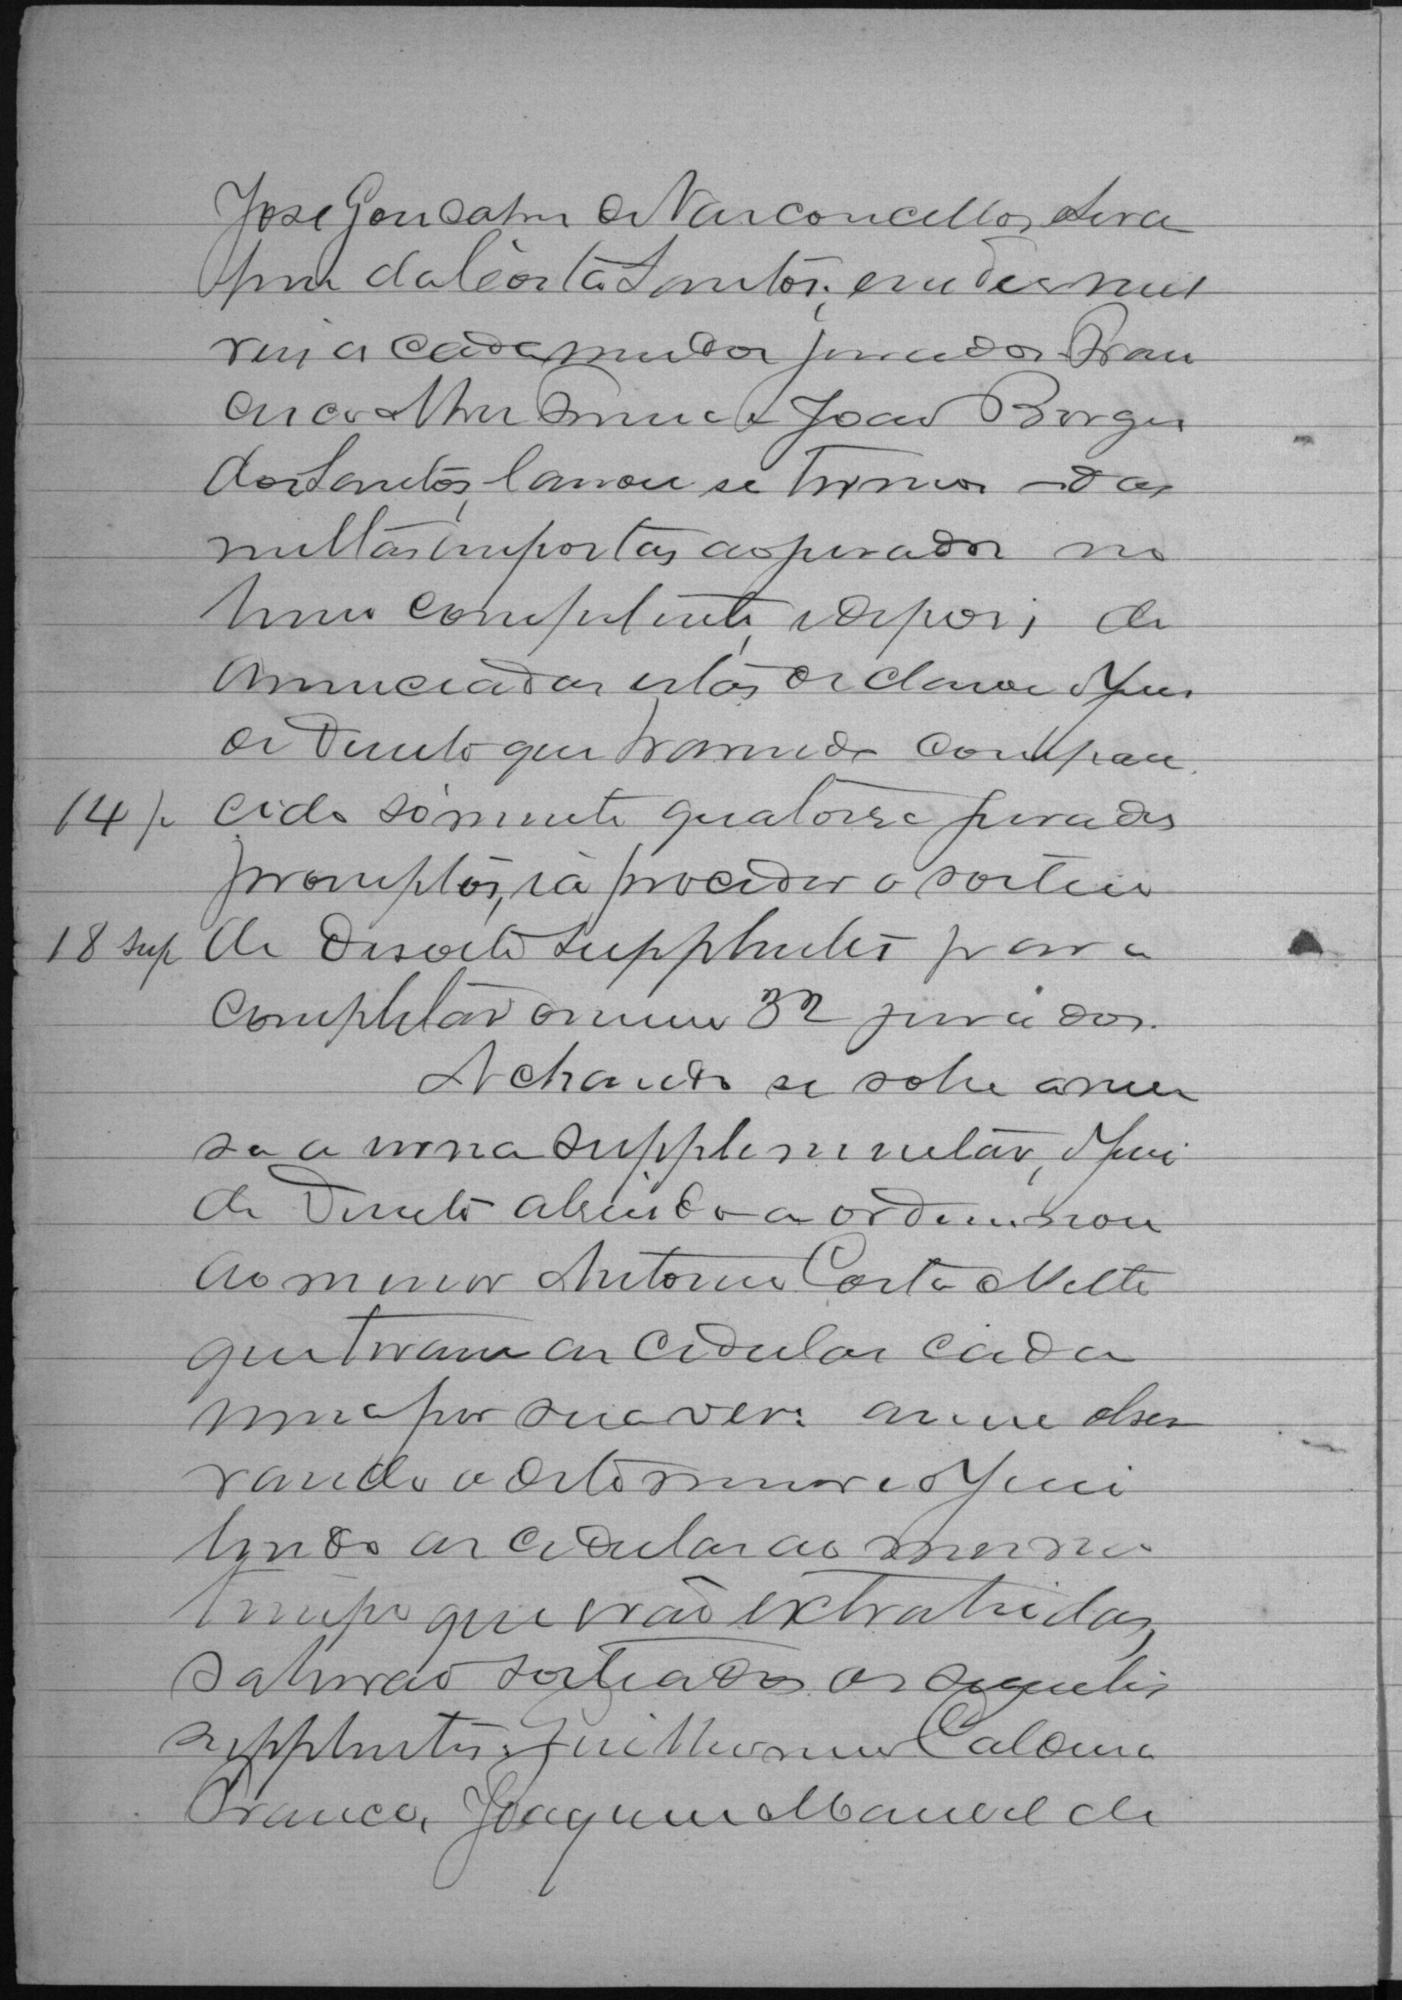 José Gonsalves de Vasconcellos e Sera
fim da Costa Santos, e em des mil
reis a cada um dos jurados Fran
cisco Alves e João Borges
dos Santos, lavrou se termos das
multas impostas aos jurados no
livro competente, e depois de
annunciadas estas declarou o Juiz
de Direito que havendo compare
14 j. cido sómente quatorse jurados
promptos, ia proceder o sorteio
18 sup de desoito supplentes para
completar o numero 32 jurados.
Achando se sobre a me
sa a urna supplementar, o Juiz
de Direito abrindo-a ordenou
ao menor Antonio Costa Netto
que tirasse as cedulas cada
uma por sua vez: assim obser
vando o dito menor e o Juiz
lendo as cedulas ao mesmo
tempo que erão extrahidas,
sahirão sorteados os seguintes
supplentes: Guilherme Caldeira
Franco, Joaquim Manoel de